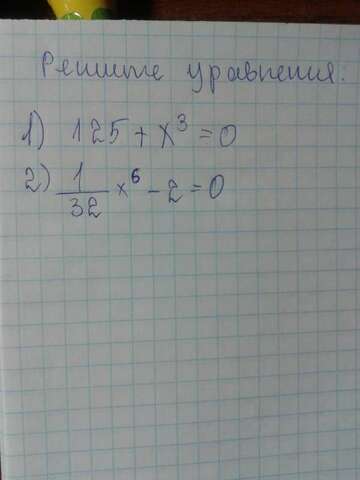 Решите уравнения:
1) 125 + x³ = 0
2) 1/32 x⁶ - 2 = 0